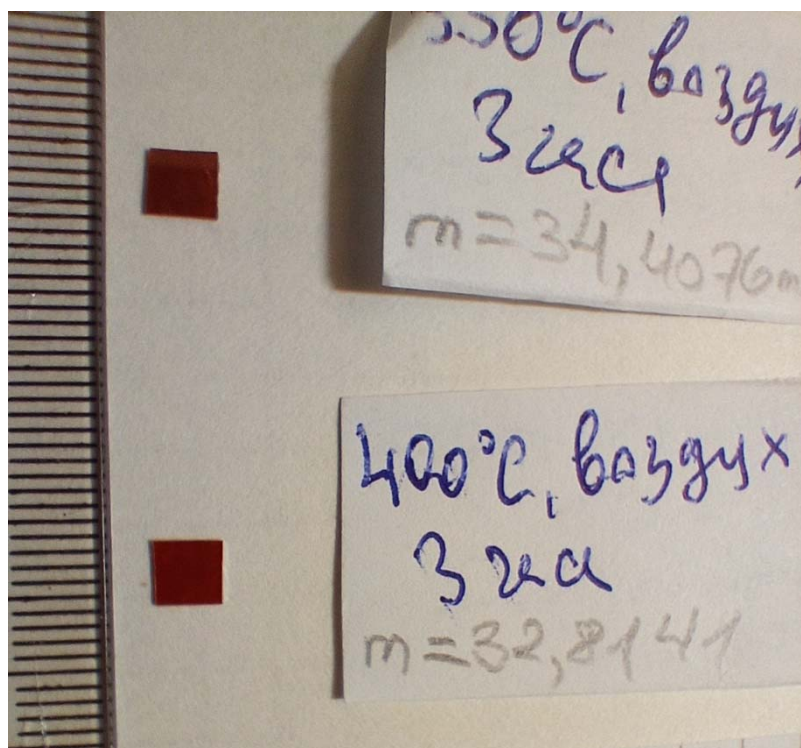 350°C, воздух
3 часа
m=34,4076m
400°C, воздух
3 часа
m=32,8141